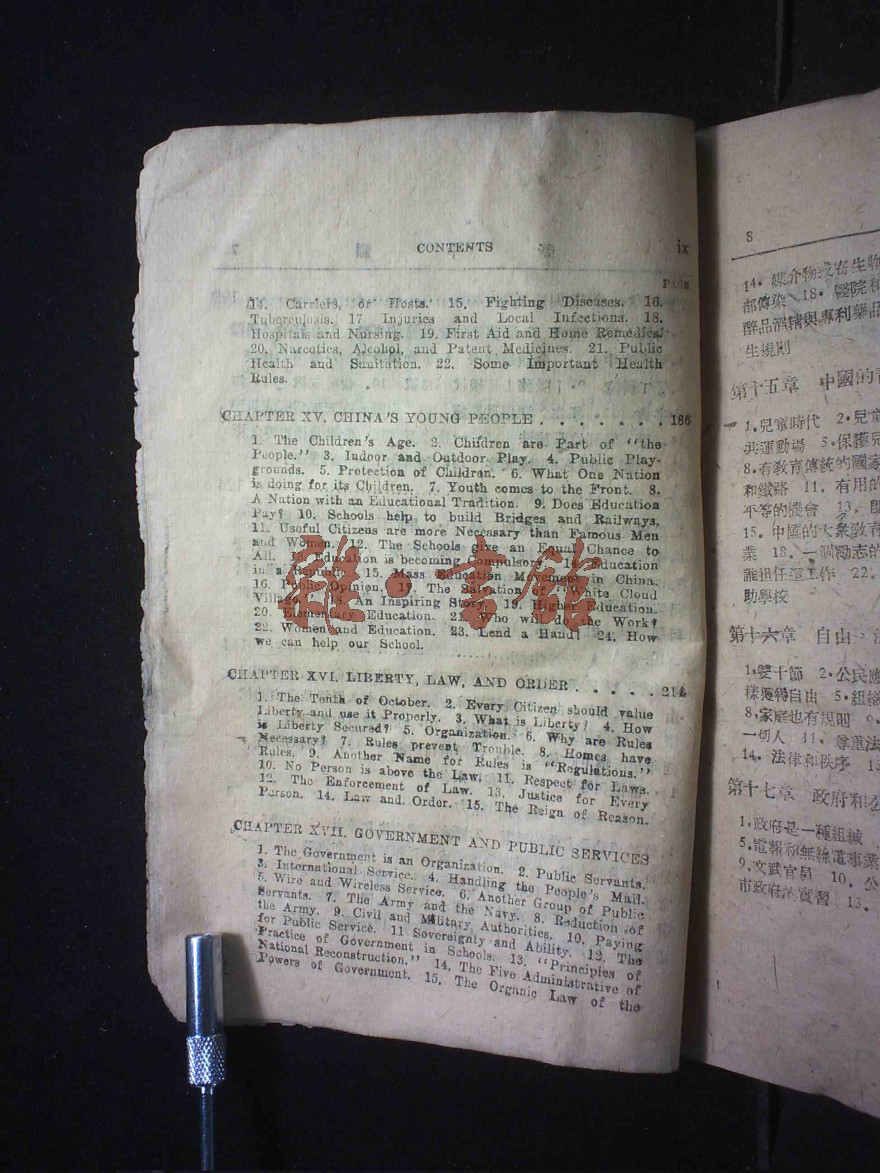 CONTENTS ix
PAGE
14. Carriers, or Hosts. 15. Fighting Diseases. 16.
Tuberculosis. 17 Injuries and Local Infections. 18.
Hospitals and Nursing. 19. First Aid and Home Remedies.
20. Narcotics, Alcohol, and Patent Medicines. 21. Public
Health and Sanitation. 22. Some Important Health
Rules.
CHAPTER XV. CHINA'S YOUNG PEOPLE . . . . . . . 186
1. The Children's Age. 2. Children are Part of "the
People." 3. Indoor and Outdoor Play. 4. Public Play-
grounds. 5. Protection of Children. 6. What One Nation
is doing for its Children. 7. Youth comes to the Front. 8.
A Nation with an Educational Tradition. 9. Does Education
Pay? 10. Schools help to build Bridges and Railways.
11. Useful Citizens are more Necessary than Famous Men
and Women. 12. The Schools give an Equal Chance to
All. 13. Education is becoming Compulsory. 14. Education
in a Republic. 15. Mass Education Movement in China.
16. Public Opinion. 17. The Salvation of "White Cloud
Village." 18. An Inspiring Story. 19. Higher Education.
20. Elementary Education. 21. Who will do the Work?
22. Women and Education. 23. Lend a Hand! 24. How
we can help our School.
CHAPTER XVI. LIBERTY, LAW, AND ORDER . . . . . 214
1. The Tenth of October. 2. Every Citizen should value
Liberty and use it Properly. 3. What is Liberty? 4. How
is Liberty Secured? 5. Organization. 6. Why are Rules
Necessary? 7. Rules prevent Trouble. 8. Homes have
Rules. 9. Another Name for Rules is "Regulations."
10. No Person is above the Law. 11. Respect for Laws.
12. The Enforcement of Law. 13. Justice for Every
Person. 14. Law and Order. 15. The Reign of Reason.
CHAPTER XVII. GOVERNMENT AND PUBLIC SERVICES
1. The Government is an Organization. 2. Public Servants.
3. International Service. 4. Handling the People's Mail.
5. Wire and Wireless Service. 6. Another Group of Public
Servants. 7. The Army and the Navy. 8. Reduction of
the Army. 9. Civil and Military Authorities. 10. Paying
for Public Service. 11 Sovereignty and Ability. 12. The
Practice of Government in Schools. 13. "Principles of
National Reconstruction." 14. The Five Administrative of
Powers of Government. 15. The Organic Law of the
8
14. 媒介物或寄生物
部傳染 18. 醫院和
醉品酒精與專利藥品
生規則
第十五章 中國的
1.兒童時代 2.兒童
共運動場 5.保護兒
8.有教育傳統的國家
和鐵路 11. 有用的
平等的機會 13.
15. 中國的大衆教育
業 18. 一個勵志的
誰担任這工作 22.
助學校
第十六章 自由,
1.雙十節 2.公民應
樣獲得自由 5.組織
8.家庭也有規則 9.
一切人 11. 尊重法
14. 法律和秩序
第十七章 政府和公
1.政府是一種組織
5.電報和無線電事業
9.文武官員 10. 公
市政府的實習 13.
書館